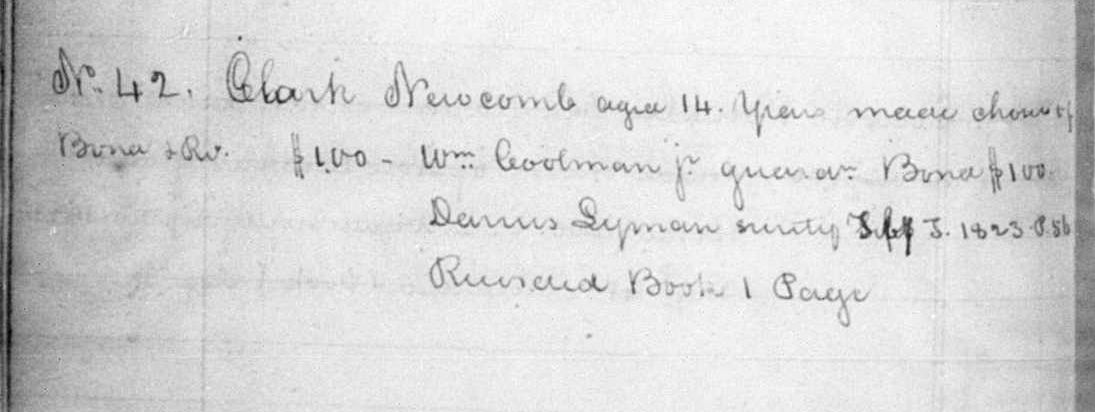 No. 42. Clark Newcomb aged 14. Years made choice of
Bond & Rec. $1,00 - Wm. Coolman jr. guardn. Bond $100
Darius Lyman surety Sept T. 1823 P. 56
Recorded Book 1 Page